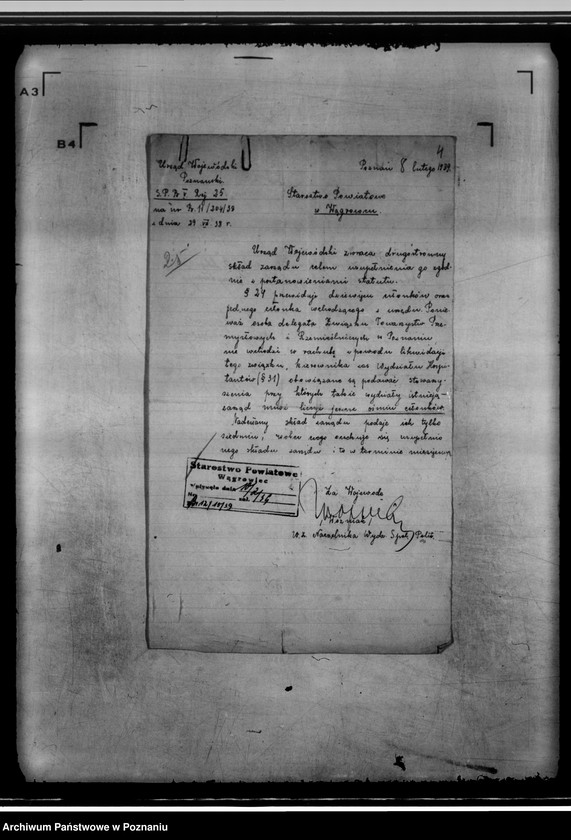 A3
B4
4
Urząd Wojewódzki
Poznański
S.P. Br V. Rej 25.
na nr Br. 11/204/38
z dnia 29 VII 38 r.
Poznań 8 lutego 1939.
Starostwo Powiatowe
w Wągrowcu.
Urząd Wojewódzki zwraca drugostronny
skład zarządu celem uzupełnienia go zgod-
nie z postanowieniami statutu.
§ 24 przewiduje dziewięciu członków oraz
jednego członka wchodzącego z urzędu. Ponie
waż osoba delegata Związku Towarzystw Prze
mysłowych i Rzemieślniczych w Poznaniu,
nie wchodzi w rachubę z powodu likwidacji
tego związku, kierownika zaś Wydziału Kospi
tantów (§ 31) obowiązane są podawać stowarzy
szenia przy których takie wydziały istnieją -
zarząd musi liczyć jeszcze ośmiu członków.
Nadesłany skład zarządu podaje ich tylko
siedmiu, wobec czego uzupełnie
nego składu zarządu i to w terminie miesięcznym
Starostwo Powiatowe
Wągrowiec
wpłynęło dnia 10/2/39
Nr zał.
Br. 12/10/39
Za Wojewodę
/Woźniak/
w. z Naczelnika Wydz Społ. Polit.
Archiwum Państwowe w Poznaniu